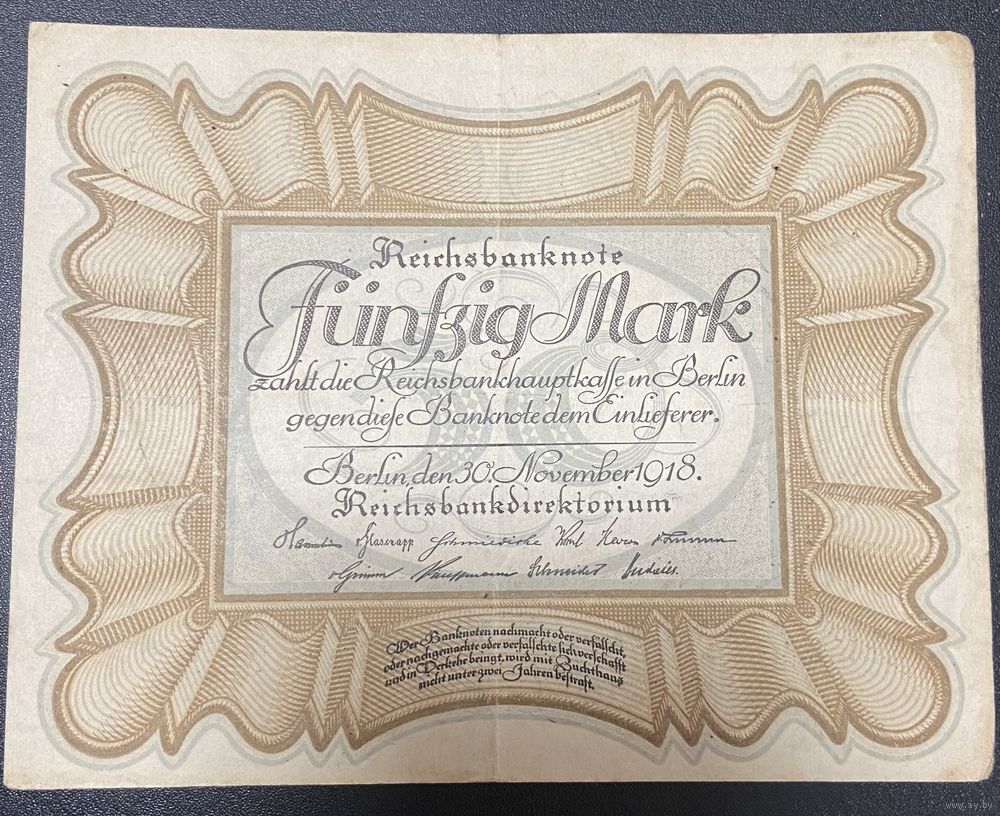 Reichsbanknote
Fünfzig Mark
zahlt die Reichsbankhauptkasse in Berlin
gegen diese Banknote dem Einlieferer.
Berlin, den 30. November 1918.
Reichsbankdirektorium
v Glasenapp Schmiedicke Korn v Grimm Kauffmann Schneider Budczies.
Wer Banknoten nachmacht oder verfälscht,
oder nachgemachte oder verfälschte sich verschafft
und in Verkehr bringt, wird mit Zuchthaus
nicht unter zwei Jahren bestraft.
www.ay.by